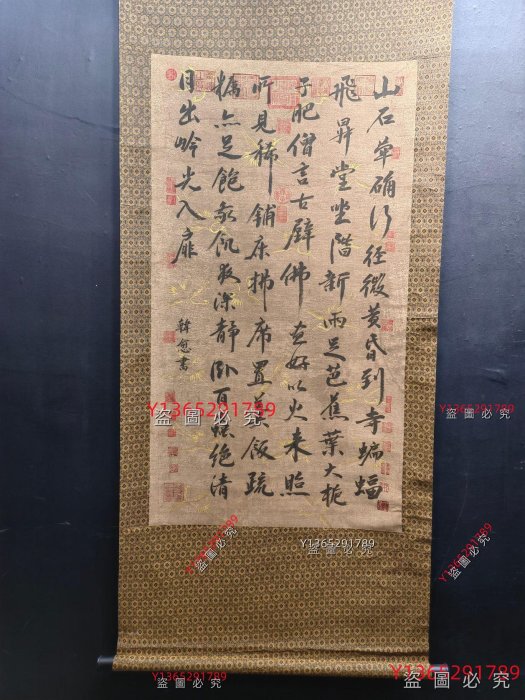 山石犖确行徑微黃昏到寺蝙蝠
飛昇堂坐階新雨足芭蕉葉大梔
子肥僧言古壁佛畫好以火來照
所見稀鋪床拂席置羹飯疏
糲亦足飽我飢夜深靜臥百蟲絕清
月出岭光入扉
韓愈書
Y1365291789
盜圖必究
Y1365291789
盜圖必究
Y1365291789
盜圖必究
Y1365291789
盜圖必究
Y1365291789
盜圖必究
Y1365291789
盜圖必究
Y1365291789
盜圖必究